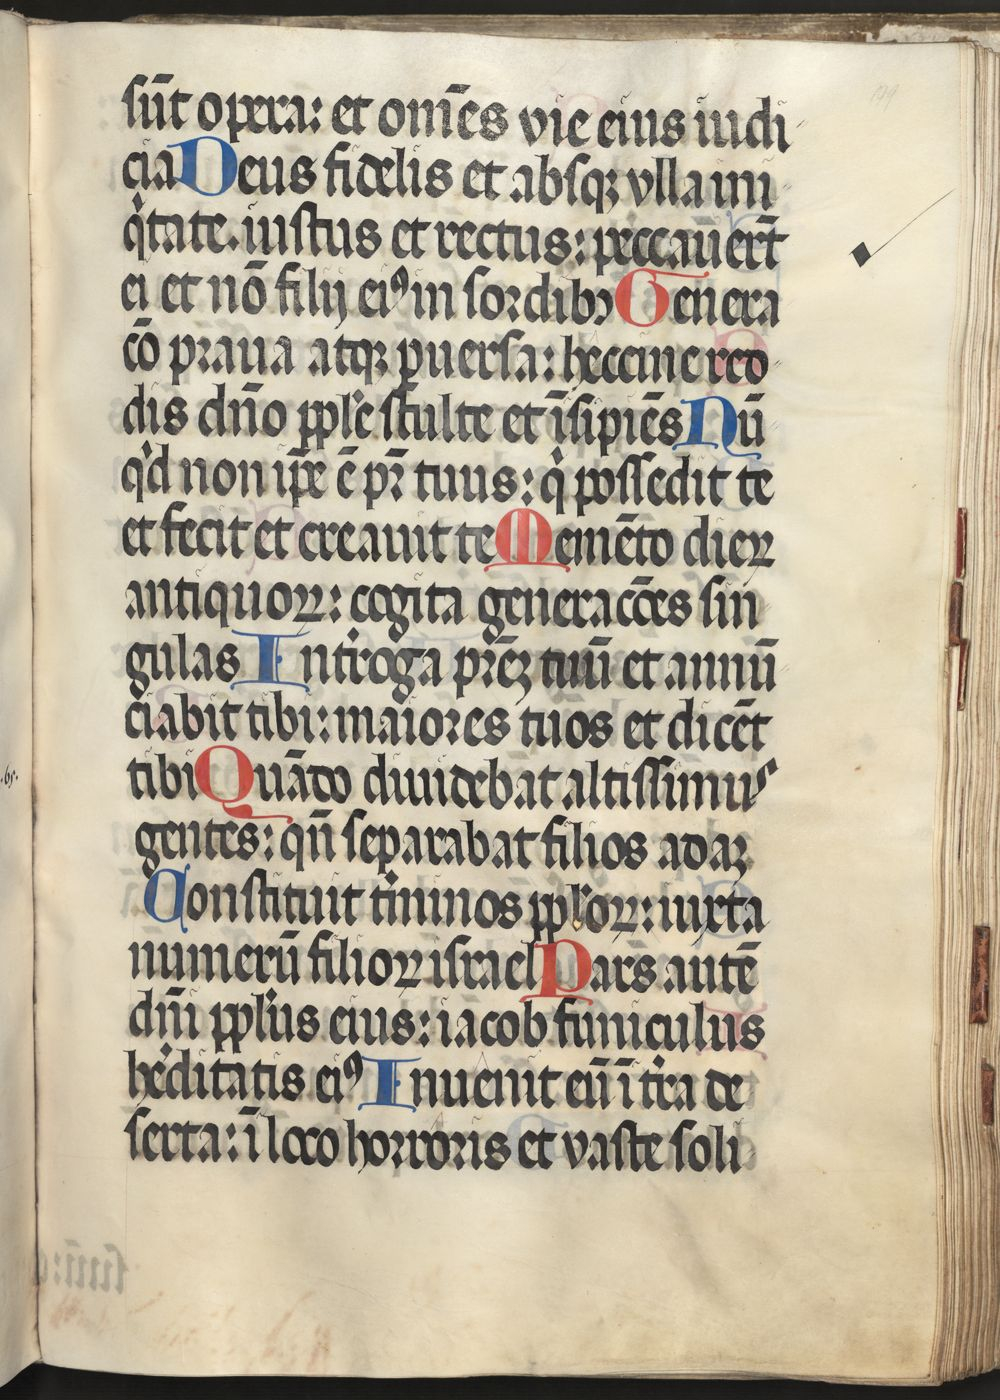 sūt opera: et om̄es vie eius iudi
cia Deus fidelis et absqꝫ vlla ini
q̇tate. iustus et rectus: peccaūer̄t
ei et nō filij eiꝰ in sordibꝫ Genera
cō praua atqꝫ ꝑuersa: heccine red
dis dn̄o pp̄le stulte et īsipiēs Nū
q̇d non ip̄e ē pr̄ tuus: q̇ possedit te
et fecit et creauit te Memēto dieꝝ
antiquoꝝ: cogita generacōes sin
gulas Introga pr̄eꝫ tuū et annū
ciabit tibi: maiores tuos et dicēt
tibi Quādo diuidebat altissimus
gentes: qn̄ separabat filios adaꝫ
Constituit tīminos pp̄loꝝ: iuxta
numerū filioꝝ israel Pars autē
dn̄i pp̄lus eius: iacob funiculus
he̾ditatis eiꝰ Inuenit eū ī tra de
serta: ī loco horroris et vaste soli
.65.
179